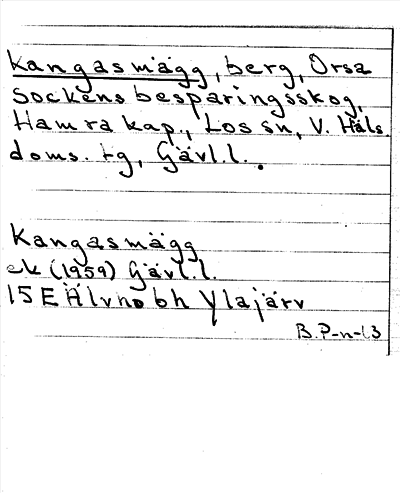 Kangasmägg, berg, Orsa
Sockens besparingsskog,
Hamra kap., Los sn, V. Häls.
doms. tg, Gävl.l.
Kangasmägg
ek (1959) Gävl.l.
15E Älvho bh Ylajärv
B.P-n-63